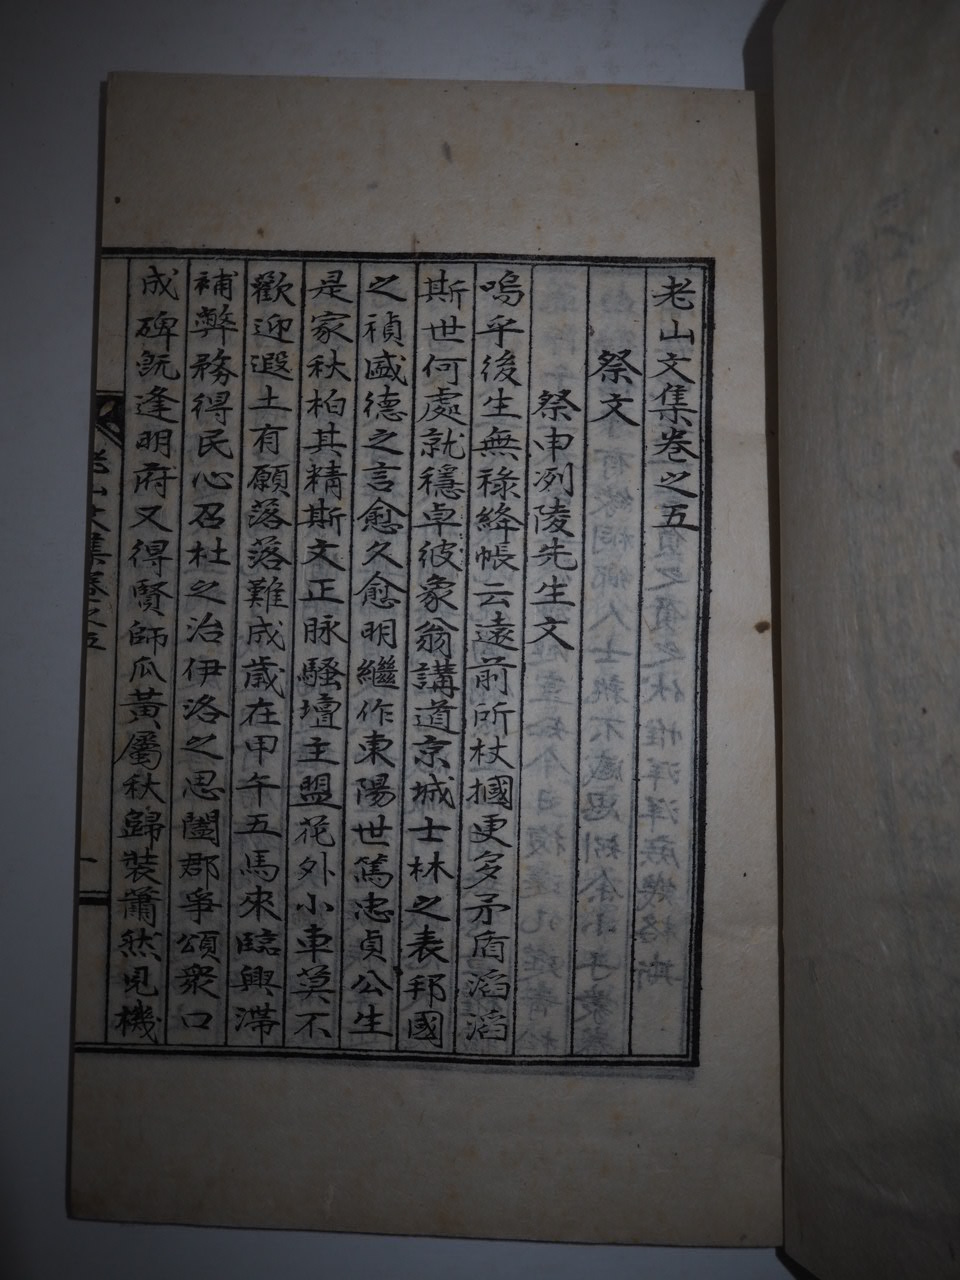 老山文集卷之五
祭文
祭申冽陵先生文
嗚乎後生無祿絳帳云遠前所杖摑更多矛盾滔滔
斯世何處就穩卓彼象翁講道京城士林之表邦國
之禎盛德之言愈久愈明繼作東陽世篤忠貞公生
是家秋柏其精斯文正脉騷壇主盟花外小車莫不
歡迎遐土有願落落難成歲在甲午五馬來臨興滯
補弊務得民心召杜之治伊洛之思闔郡爭頌衆口
成碑旣逢明府又得賢師瓜黃屬秋歸裝蕭然見機
老山文集卷之五
一